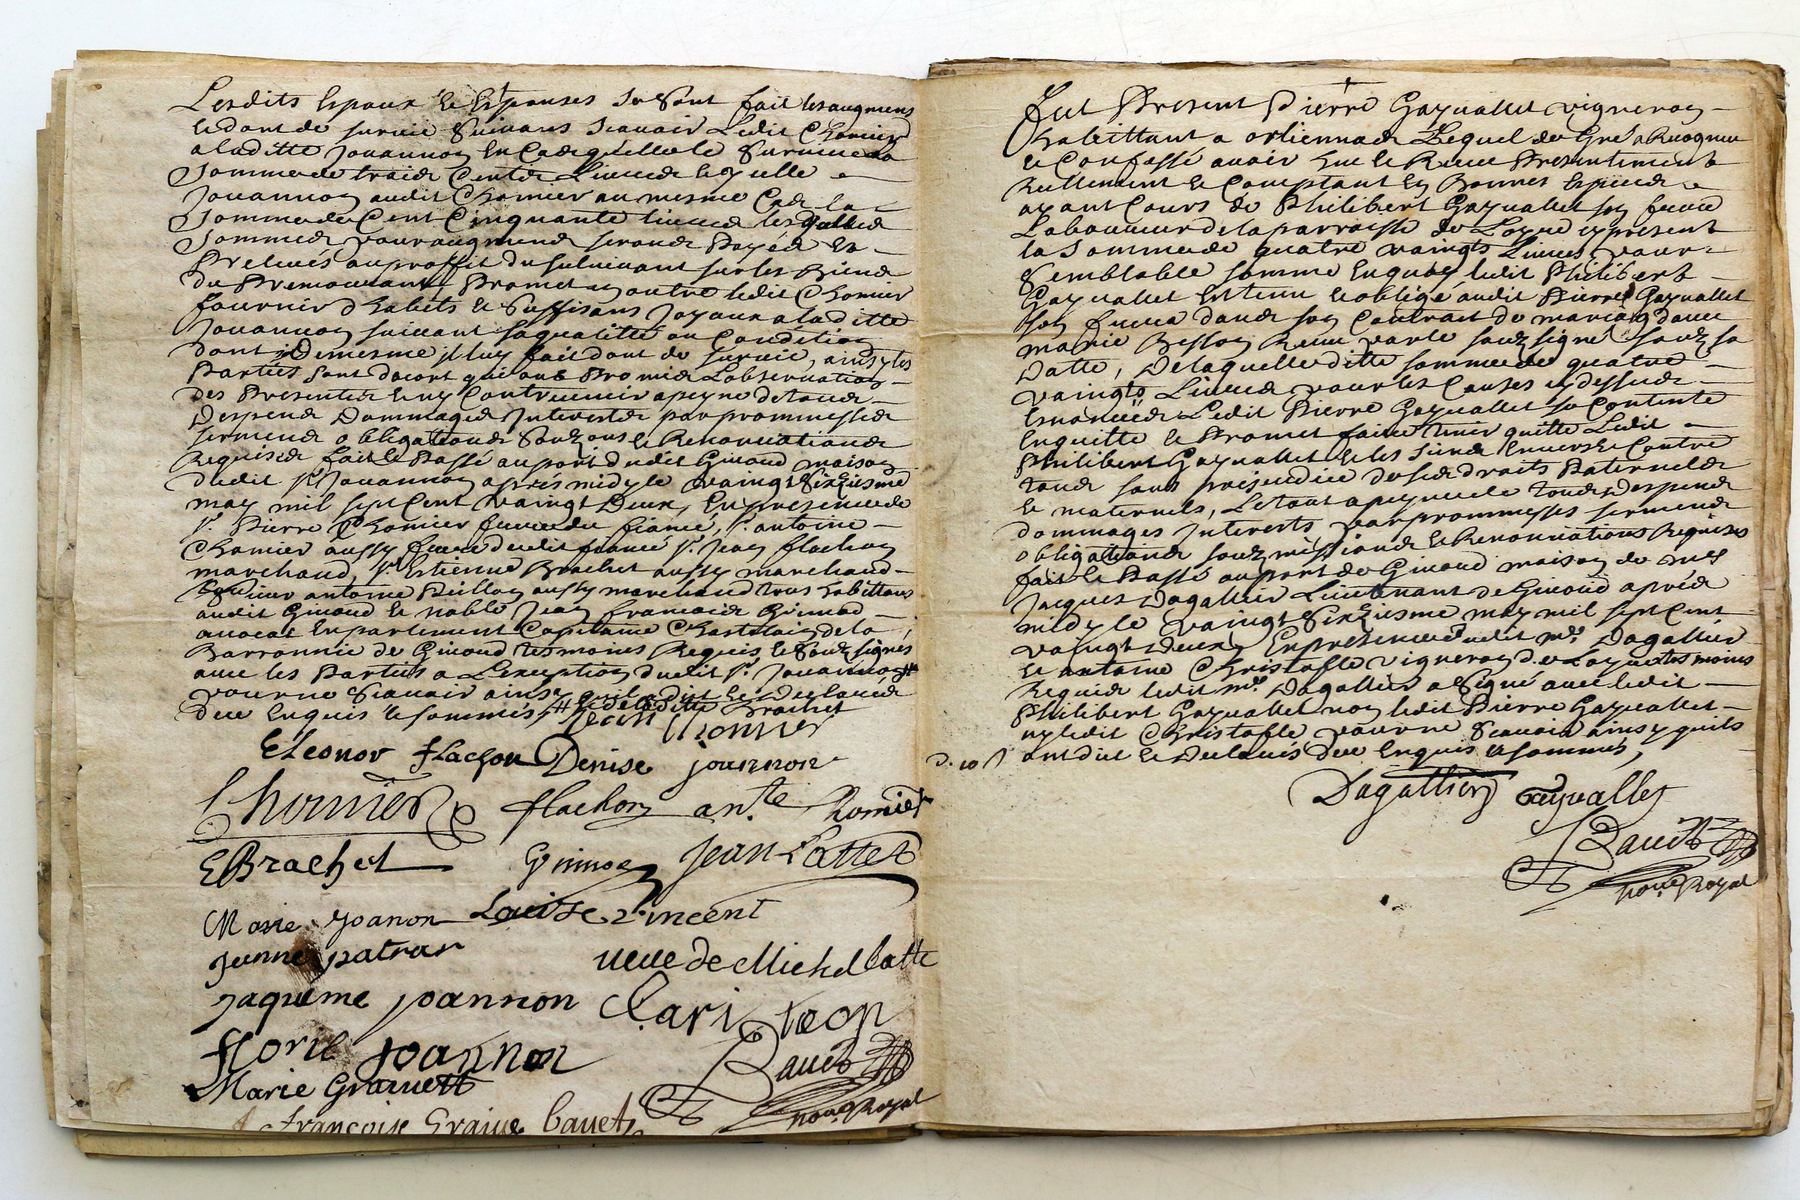 Lesdits Espoux et Espouses se sont fait les augmens
et dont de survie suivans scavoir Ledit Chomier
a laditte Jouannon En Cas quelle le survive la
Somme de trois Cents Livres et ycelle
Jouannon audit Chomier au mesme Cas la
Somme de Cent Cinquante livres lesquelles
Sommes pour augmens seront Payées et
Prelevés au proffit du survivant sur les Biens
du Premourant Promet en outre ledit Chomier
fournir d'habits et suffisans Joyaux a laditte
Jouannon suivant sa qualitté ou Condition
dont de mesme il luy fait dont de survie, ainsy les
Parties sont dacort qui ont Promis L'observation
des Presentes et ny Contrevenir a peyne de tous
Despens Dommages Interests par prommesses
serment obligations et Renonciations
Requises fait et Passé au port dudit Giroud maison
dudit Sr Jouannon après midy le vaingt Sixiesme
may mil sept Cent vaingt Deux, En presence de
Sr Pierre Chomier frere du fiancé, Sr antoine
Chomier aussy frere dudit fiancé Sr Jean flachon
marchand, Sr Estienne Brachet aussy marchand
antoine aussy marchand tous habittans
audit Giroud et noble Jean francois
avocat En parlement Capitaine Chastelain de la
Barronnie de Giroud tesmoins Requis et Soubsignés
avec les Parties a L'exception dudit Sr Jouannon
pour ne Scavoir ainsy quil a dit et declaré
de ce Enquis et sommés
Jean Chomier
Eleonor flachon Denise joannon
Chomier flachon ante Chomier
EBrachet Jean Lattet
Marie Joanon Louise vincent
Janne patrar veve de Michel latte
Jaqueme joannon
florie joannon Bauet
Marie Gravett notre Royal
françoise Graive bauet
Fut Present Pierre Gayvallet vigneron
habittant a ortiennas Lequel de Gré a Recogneu
et Confessé avoir eu et Receu Presentement
Reellement et Comptant En Bonnes Especes
ayant Cours de Philibert Gayvallet son frere
Laboureur de la parroisse de Loyes y present
la Somme de quatre vaingts Livres pour
Semblable somme En quoy ledit Philibert
Gayvallet Est tenu et obligé audit Pierre Gayvallet
son frere dans son Contrat de mariage avec
marie Besson Receu par le soubsigné soubs sa
Datte, De laquelle ditte somme de quatre
vaingts Livres pour les Causes cy dessus
Enoncées Ledit Pierre Gayvallet se Contente
En quitte et Promet faire tenir quitte Ledit
Philibert Gayvallet et les Siens Envers et Contre
tous sans prejudice de ses droits Paternels
et maternels, Le tout a peyne de tous despens
dommages Interests par prommesses serment
obligations soubmissions et Renonciations Requises
fait et Passé au port de Giroud maison de me
Jacques Dagallier Lieutenant de Giroud après
midy le vaingt Sixiesme may mil sept Cent
vaingt deux, En presence dudit me Dagallier
et antoine Christofle vigneron de Loyes tesmoins
Requis ledit me Dagallier a Signé avec ledit
Philibert Gayvallet non ledit Pierre Gayvallet
ny ledit Christofle pour ne Scavoir ainsy quils
ont dit et declarés de ce Enquis et sommés,
Dagallier Gayvallet
Bauet
notre Royal